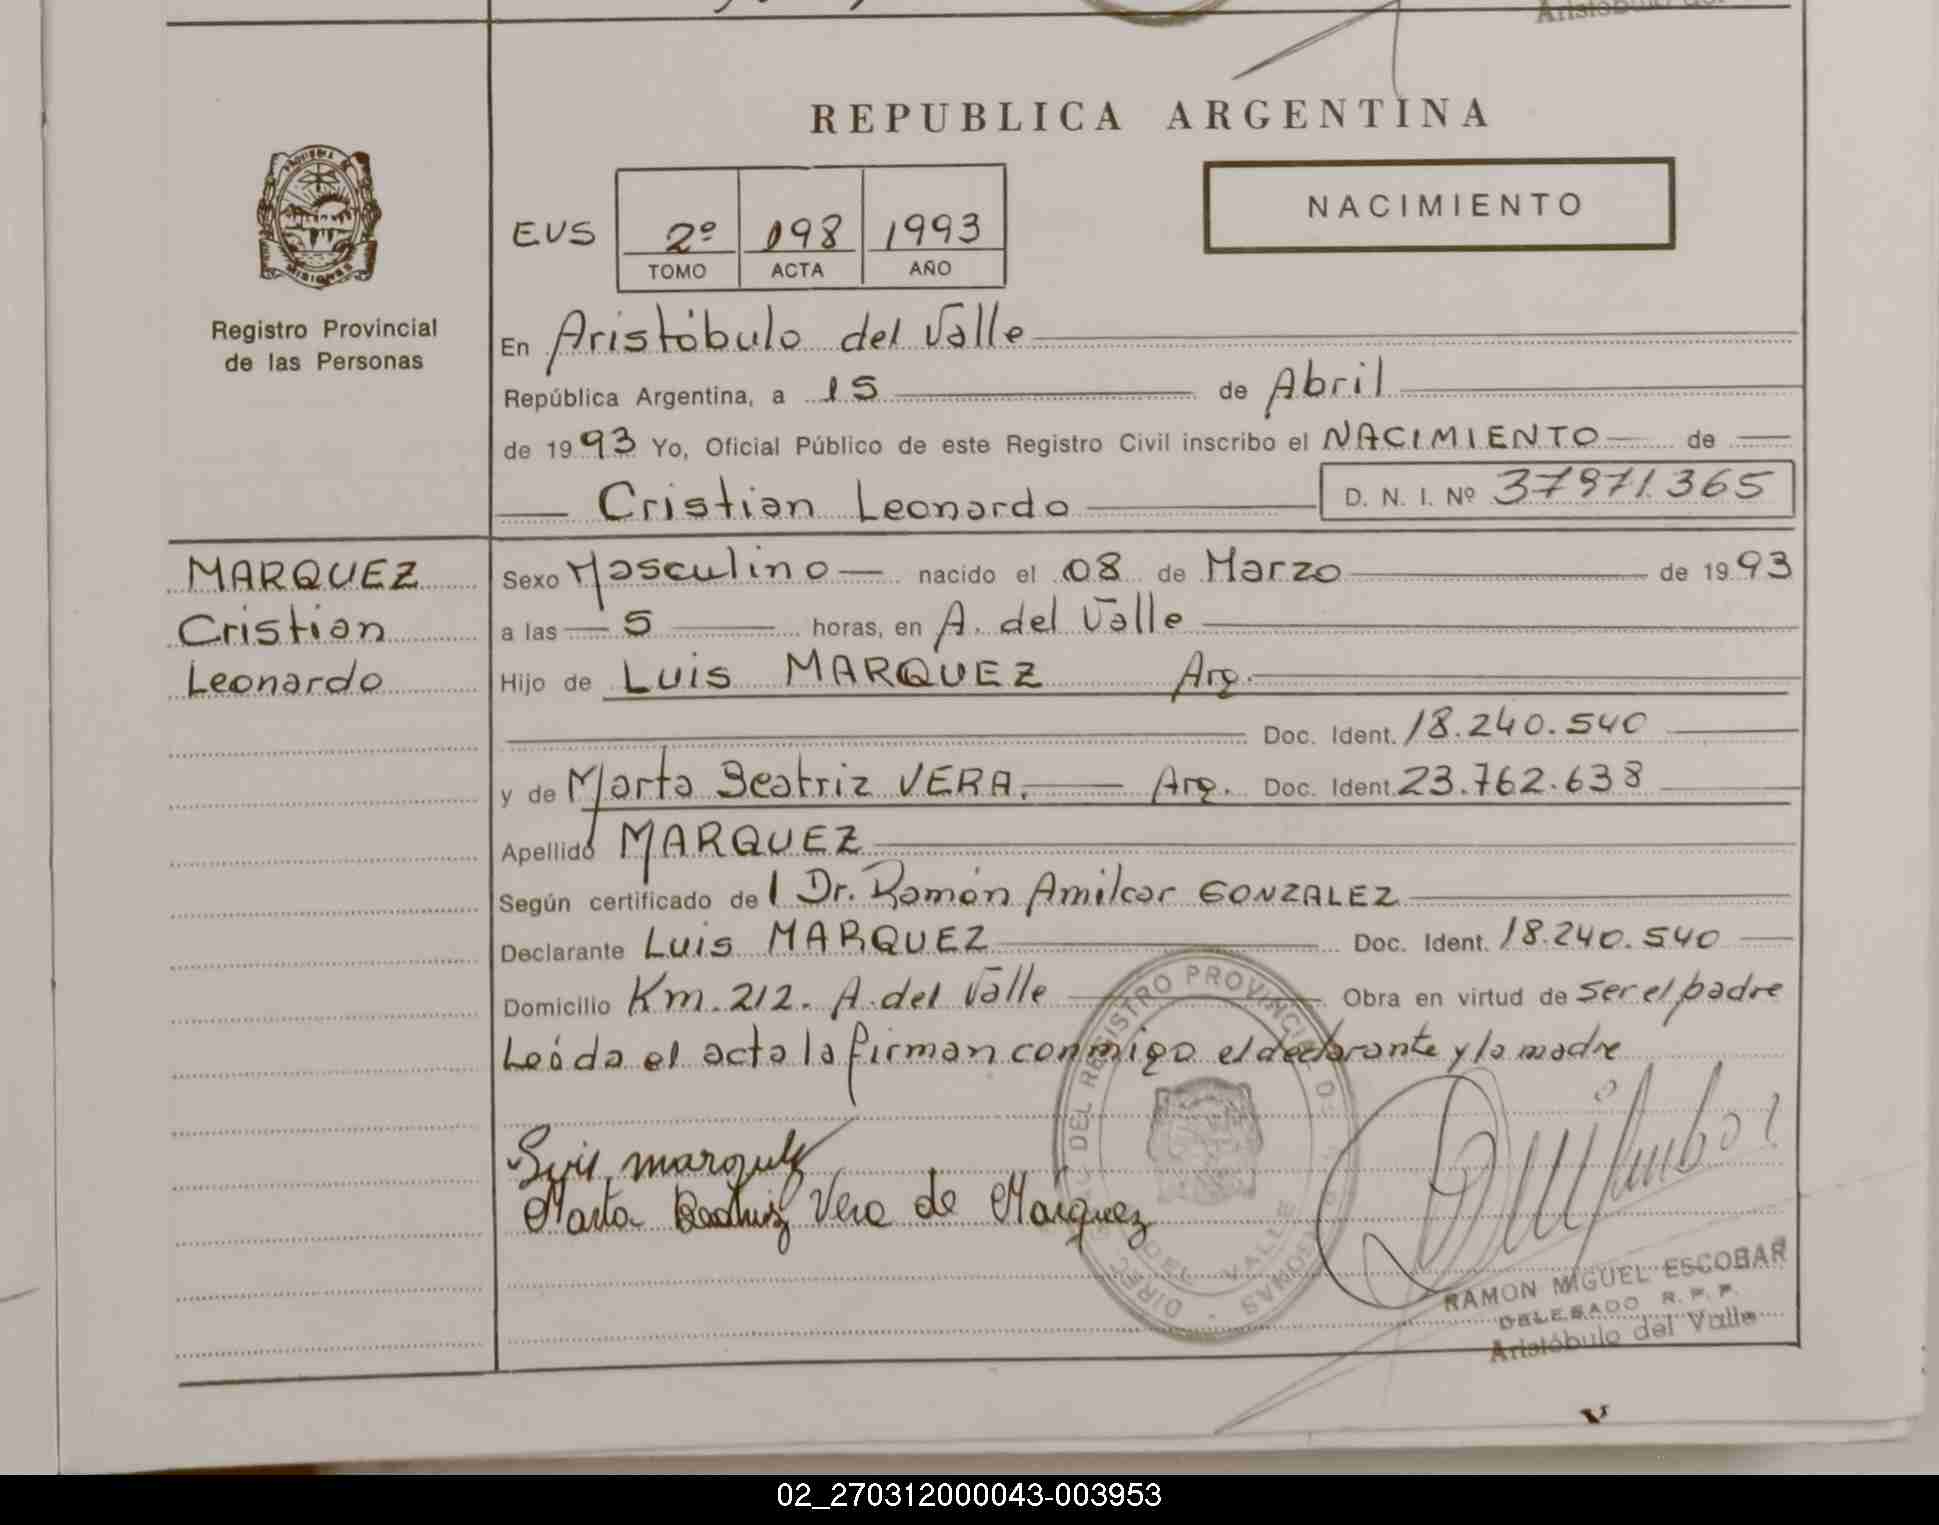 Aristóbulo del
REPUBLICA ARGENTINA
EUS 2º 198 1993
TOMO ACTA AÑO
NACIMIENTO
Registro Provincial
de las Personas
En Aristóbulo del Valle
República Argentina, a 15 de Abril
de 1993 Yo, Oficial Público de este Registro Civil inscribo el NACIMIENTO de
Cristian Leonardo D. N. I. Nº 37971365
MARQUEZ
Cristian
Leonardo
Sexo Masculino nacido el 08 de Marzo de 1993
a las 5 horas, en A. del Valle
Hijo de Luis MARQUEZ Arg.
Doc. Ident. 18.240.540
y de Marta Beatriz VERA. Arg. Doc. Ident. 23.762.638
Apellido MARQUEZ
Según certificado del Dr. Ramón Amilcar GONZALEZ
Declarante Luis MARQUEZ Doc. Ident. 18.240.540
Domicilio Km. 212. A. del Valle Obra en virtud de ser el padre
Leída el acta la firman conmigo el declarante y la madre
Luis marquez
Marta Beatriz Vera de Marquez
RAMON MIGUEL ESCOBAR
DELEGADO R. P. P.
Aristóbulo del Valle
02_270312000043-003953